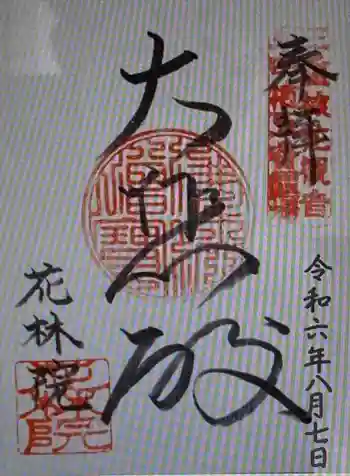 奉拝
大悲殿
令和六年八月七日
花林院